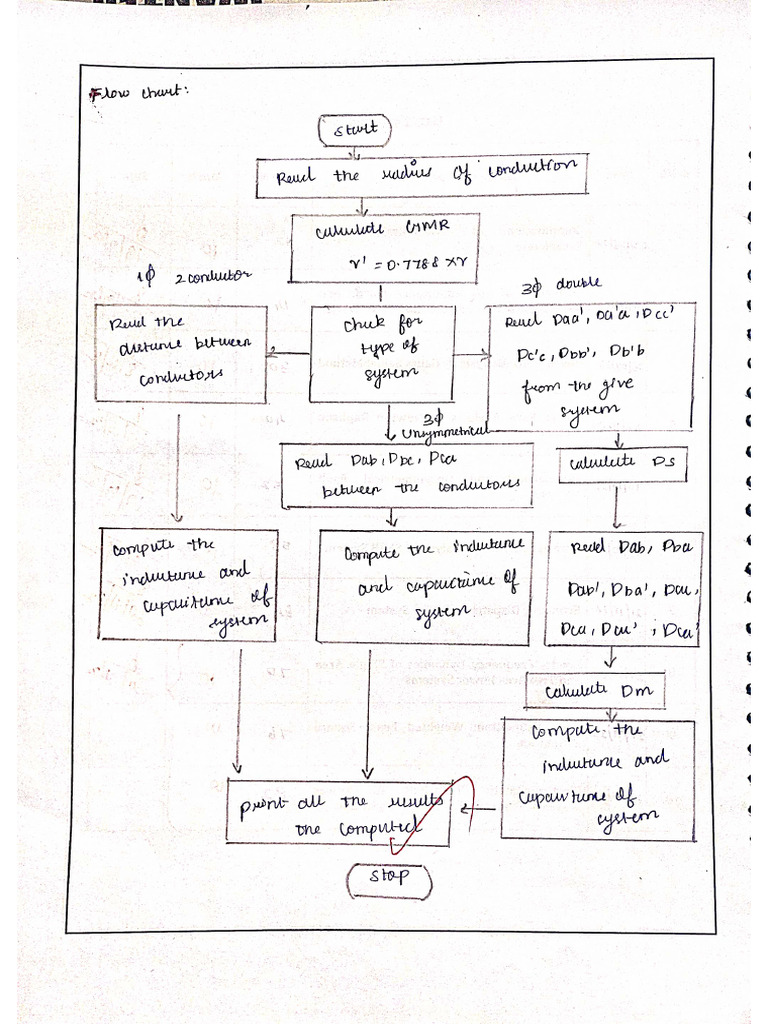 Flow chart:
Start
Read the radius of conduction
Calculate GMR
r' = 0.7788 × r
1φ 2 conductor
3φ double
Read the
distance between
conductors
Check for
type of
system
Read Daa', Da'a, Dcc'
Dc'c, Dbb', Db'b
from the give
system
3φ
Unsymmetrical
Read Dab, Dbc, Dca
between the conductors
Calculate Ds
Compute the
inductance and
capacitance of
system
Compute the inductance
and capacitance of
system
Read Dab, Dba
Dab', Dba',
Calculate Dm
Compute the
inductance and
capacitance of
system
print all the results
the computed
stop